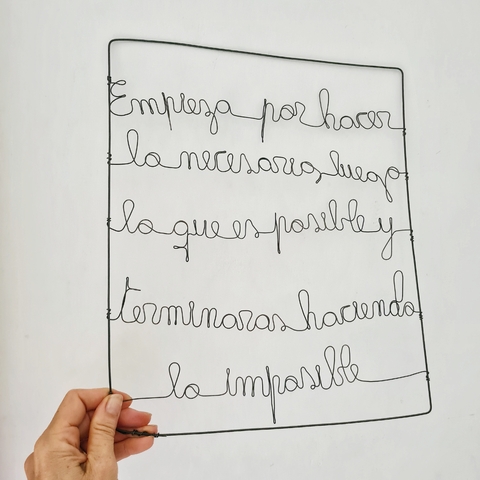 Empieza por hacer
lo necesario, luego
lo que es posible y
terminaras haciendo
lo imposible